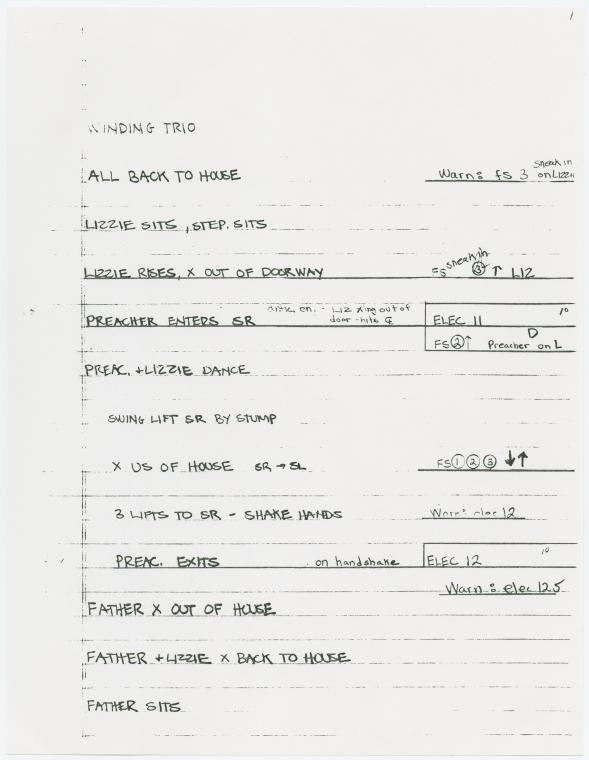 1
WINDING TRIO
sneak in
ALL BACK TO HOUSE Warn: FS 3 on LIZZIE
LIZZIE SITS, STEP. SITS
sneak in
LIZZIE RISES, X OUT OF DOORWAY FS ③ ↑ LIZ
en. - LIZ Xing out of 10
PREACHER ENTERS SR door - hits ℄ ELEC 11
D
FS ② ↑ Preacher on L
PREAC. + LIZZIE DANCE
SWING LIFT SR BY STUMP
X US OF HOUSE SR → SL FS ① ② ③ ↓↑
3 LIFTS TO SR - SHAKE HANDS Warn: elec 12
10
PREAC. EXITS on handshake ELEC 12
Warn: elec 12.5
FATHER X OUT OF HOUSE
FATHER + LIZZIE X BACK TO HOUSE
FATHER SITS